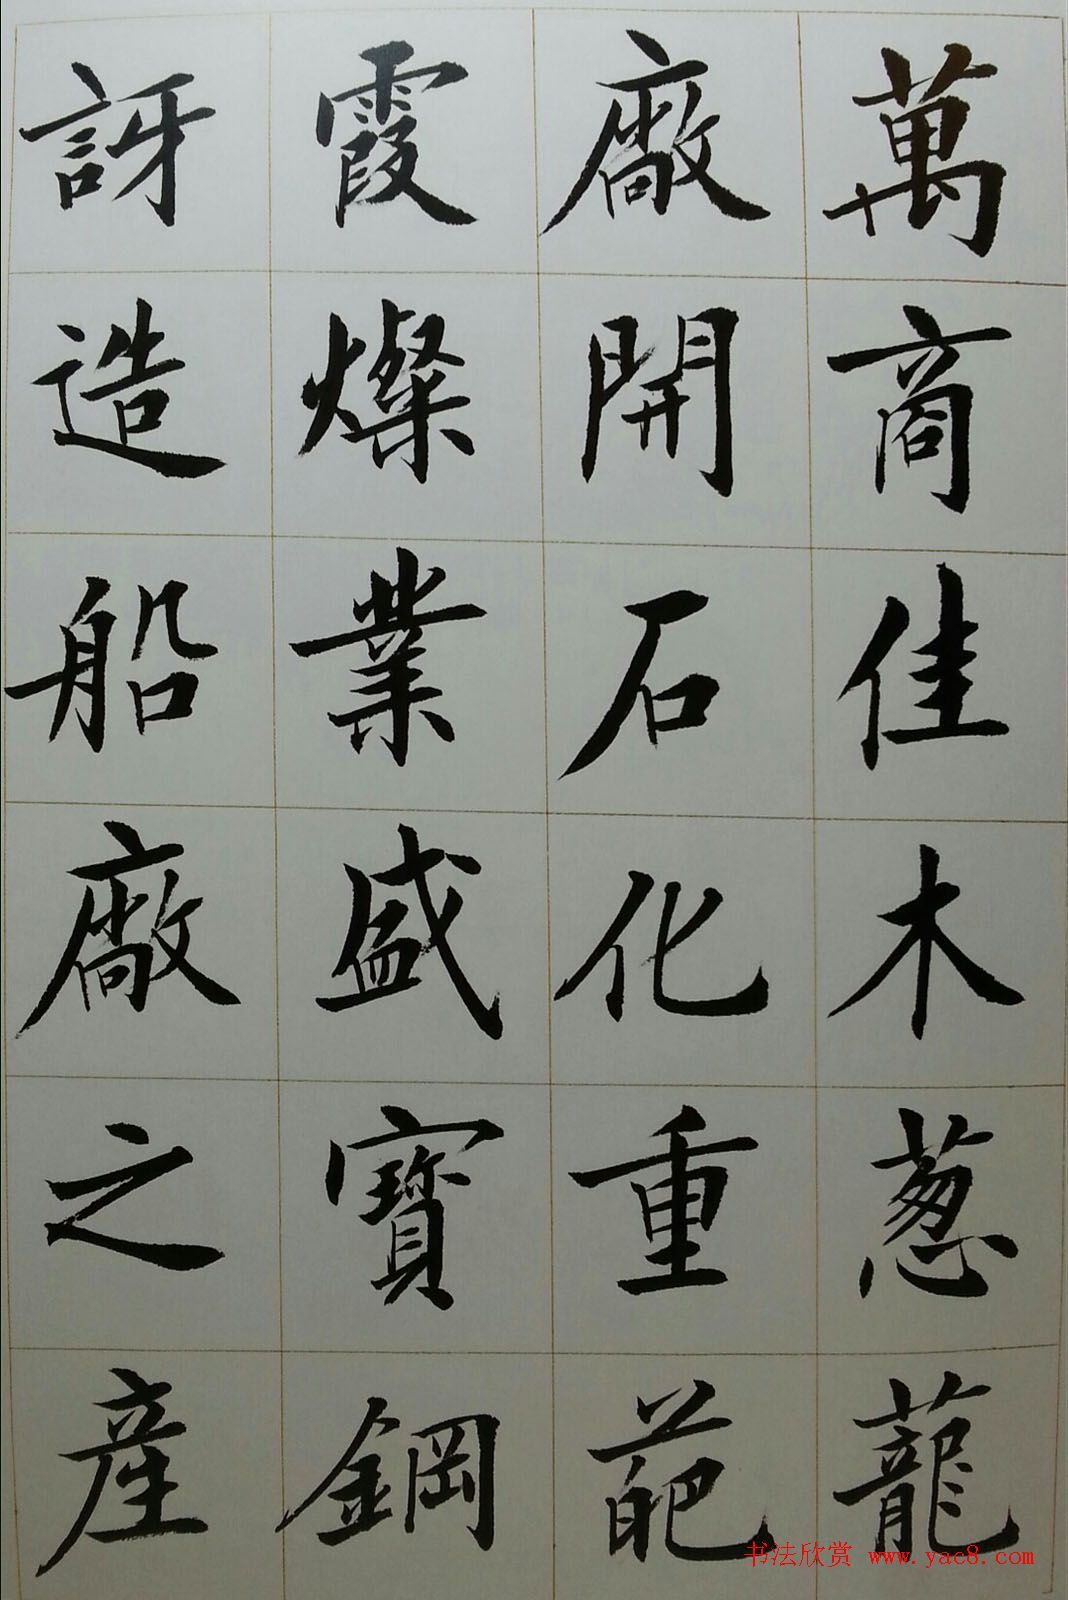 萬商佳木蔥蘢
廠開石化重葩
霞燦業盛寶鋼
訝造船廠之產
书法欣赏 www.yac8.com